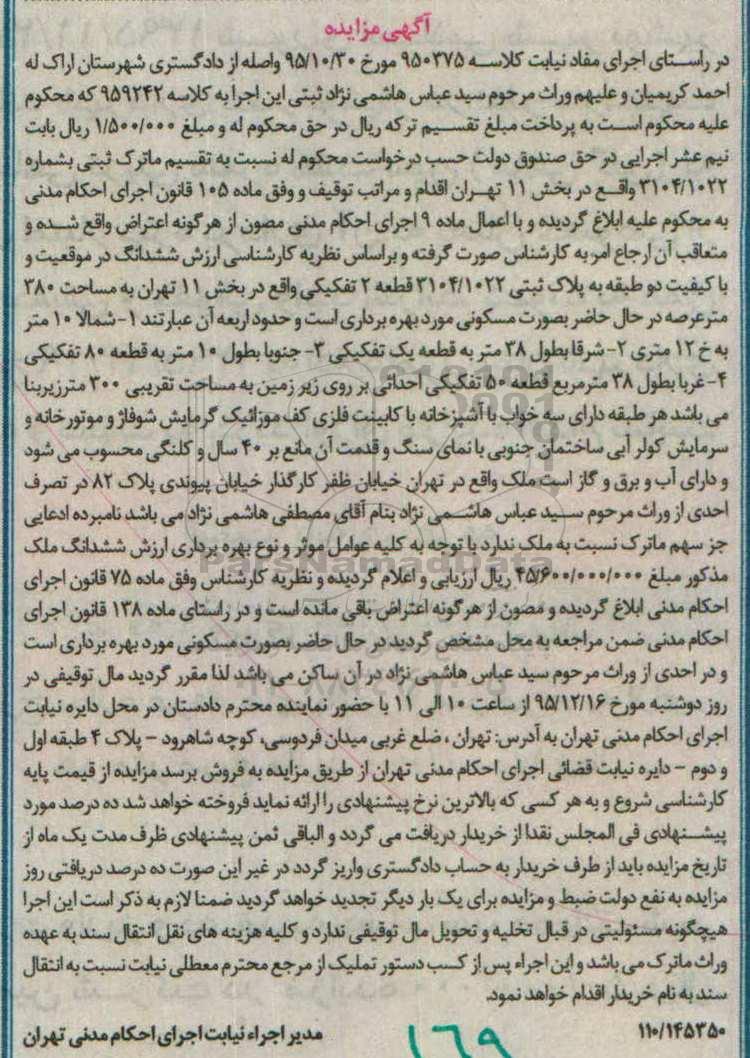 آگهی مزایده
در راستای اجرای مفاد نیابت کلاسه ۹۵۰۳۷۵ مورخ ۹۵/۱۰/۳۰ واصله از دادگستری شهرستان اراک له
احمد کریمیان و علیهم وراث مرحوم سید عباس هاشمی نژاد ثبتی این اجرا به کلاسه ۹۵۹۲۴۲ که محکوم
علیه محکوم است به پرداخت مبلغ تقسیم ترکه ریال در حق محکوم له و مبلغ ۱/۵۰۰/۰۰۰ ریال بابت
نیم عشر اجرایی در حق صندوق دولت حسب درخواست محکوم له نسبت به تقسیم ماترک ثبتی بشماره
۳۱۰۴/۱۰۲۲ واقع در بخش ۱۱ تهران اقدام و مراتب توقیف و وفق ماده ۱۰۵ قانون اجرای احکام مدنی
به محکوم علیه ابلاغ گردیده و با اعمال ماده ۹ اجرای احکام مدنی مصون از هرگونه اعتراض واقع شده و
متعاقب آن ارجاع امر به کارشناس صورت گرفته و براساس نظریه کارشناسی ارزش ششدانگ در موقعیت و
با کیفیت دو طبقه به پلاک ثبتی ۳۱۰۴/۱۰۲۲ قطعه ۲ تفکیکی واقع در بخش ۱۱ تهران به مساحت ۳۸۰
مترعرصه در حال حاضر بصورت مسکونی مورد بهره برداری است و حدود اربعه آن عبارتند ۱- شمالا ۱۰ متر
به خ ۱۲ متری ۲- شرقا بطول ۳۸ متر به قطعه یک تفکیکی ۳- جنوبا بطول ۱۰ متر به قطعه ۸۰ تفکیکی
۴- غربا بطول ۳۸ مترمربع قطعه ۵۰ تفکیکی احداثی بر روی زیر زمین به مساحت تقریبی ۳۰۰ مترزیربنا
می باشد هر طبقه دارای سه خواب با آشپزخانه با کابینت فلزی کف موزائیک گرمایش شوفاژ و موتورخانه و
سرمایش کولر آبی ساختمان جنوبی با نمای سنگ و قدمت آن مانع بر ۴۰ سال و کلنگی محسوب می شود
و دارای آب و برق و گاز است ملک واقع در تهران خیابان ظفر کارگذار خیابان پیوندی پلاک ۸۲ در تصرف
احدی از وراث مرحوم سید عباس هاشمی نژاد بنام آقای مصطفی هاشمی نژاد می باشد نامبرده ادعایی
جز سهم ماترک نسبت به ملک ندارد با توجه به کلیه عوامل موثر و نوع بهره برداری ارزش ششدانگ ملک
مذکور مبلغ ۴۵/۶۰۰/۰۰۰/۰۰۰ ریال ارزیابی و اعلام گردیده و نظریه کارشناس وفق ماده ۷۵ قانون اجرای
احکام مدنی ابلاغ گردیده و مصون از هرگونه اعتراض باقی مانده است و در راستای ماده ۱۳۸ قانون اجرای
احکام مدنی ضمن مراجعه به محل مشخص گردید در حال حاضر بصورت مسکونی مورد بهره برداری است
و در احدی از وراث مرحوم سید عباس هاشمی نژاد در آن ساکن می باشد لذا مقرر گردید مال توقیفی در
روز دوشنبه مورخ ۹۵/۱۲/۱۶ از ساعت ۱۰ الی ۱۱ با حضور نماینده محترم دادستان در محل دایره نیابت
اجرای احکام مدنی تهران به آدرس: تهران، ضلع غربی میدان فردوسی، کوچه شاهرود - پلاک ۴ طبقه اول
و دوم - دایره نیابت قضائی اجرای احکام مدنی تهران از طریق مزایده به فروش برسد مزایده از قیمت پایه
کارشناسی شروع و به هر کسی که بالاترین نرخ پیشنهادی را ارائه نماید فروخته خواهد شد ده درصد مورد
پیشنهادی فی المجلس نقدا از خریدار دریافت می گردد و الباقی ثمن پیشنهادی ظرف مدت یک ماه از
تاریخ مزایده باید از طرف خریدار به حساب دادگستری واریز گردد در غیر این صورت ده درصد دریافتی روز
مزایده به نفع دولت ضبط و مزایده برای یک بار دیگر تجدید خواهد گردید ضمنا لازم به ذکر است این اجرا
هیچگونه مسئولیتی در قبال تخلیه و تحویل مال توقیفی ندارد و کلیه هزینه های نقل انتقال سند به عهده
وراث ماترک می باشد و این اجراء پس از کسب دستور تملیک از مرجع محترم معطلی نیابت نسبت به انتقال
سند به نام خریدار اقدام خواهد نمود.
۱۱۰/۱۴۵۳۵۰ مدیر اجراء نیابت اجرای احکام مدنی تهران
۱۶۹
ParsNamadData